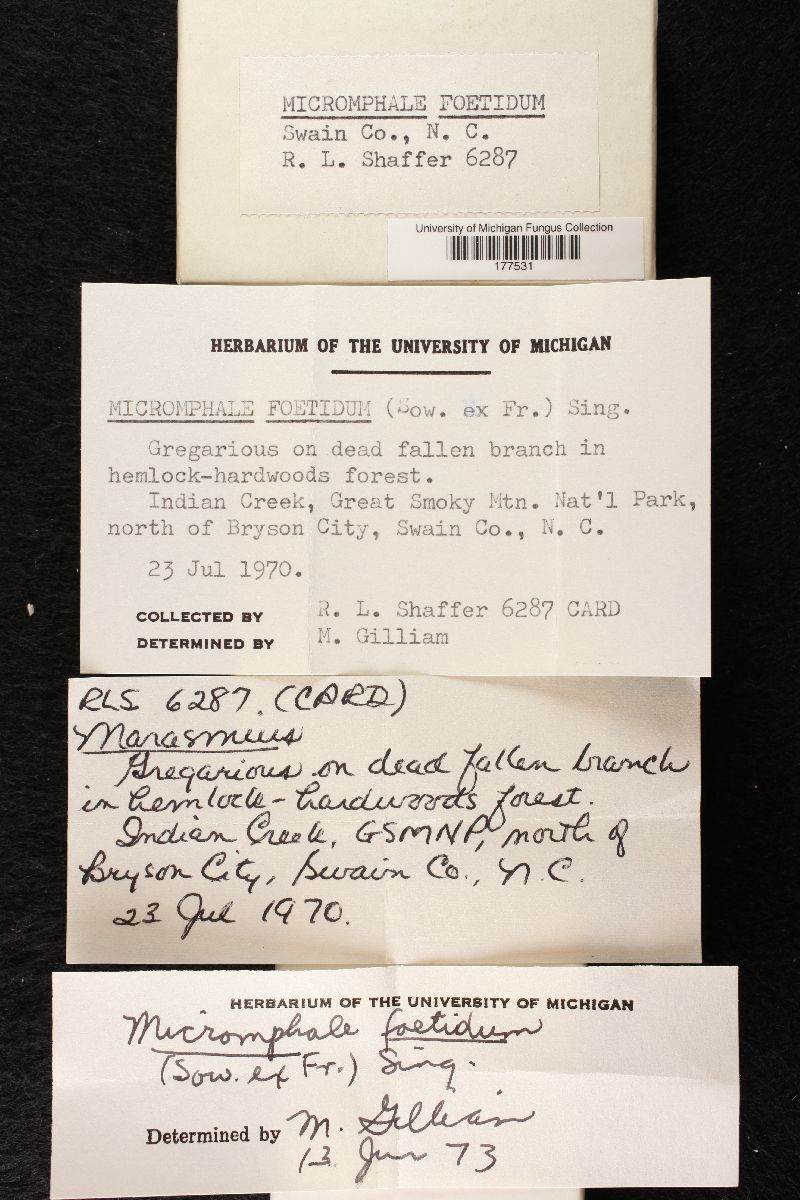 MICROMPHALE FOETIDUM
Swain Co., N. C.
R. L. Shaffer 6287
University of Michigan Fungus Collection
177531
HERBARIUM OF THE UNIVERSITY OF MICHIGAN
MICROMPHALE FOETIDUM (Sow. ex Fr.) Sing.
Gregarious on dead fallen branch in
hemlock-hardwoods forest.
Indian Creek, Great Smoky Mtn. Nat'l Park,
north of Bryson City, Swain Co., N. C.
23 Jul 1970.
COLLECTED BY R. L. Shaffer 6287 CARD
DETERMINED BY M. Gilliam
RLS 6287. (CARD)
Marasmius
Gregarious on dead fallen branch
in hemlock-hardwoods forest.
Indian Creek, GSMNP, north of
Bryson City, Swain Co., N.C.
23 Jul 1970.
HERBARIUM OF THE UNIVERSITY OF MICHIGAN
Micromphale foetidum
(Sow. ex Fr.) Sing.
Determined by M. Gilliam
13 73